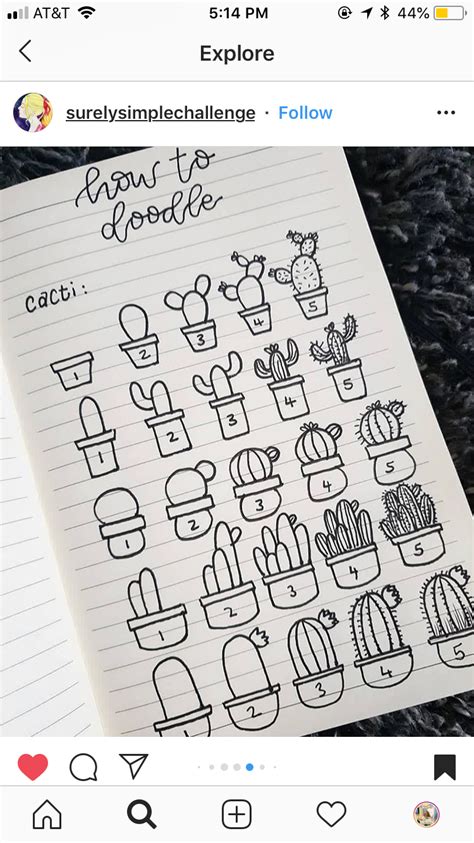 AT&T 5:14 PM 44%
Explore
surelysimplechallenge · Follow
how to
doodle
cacti:
1 2 3 4 5
1 2 3 4 5
1 2 3 4 5
1 2 3 4 5
1 2 3 4 5